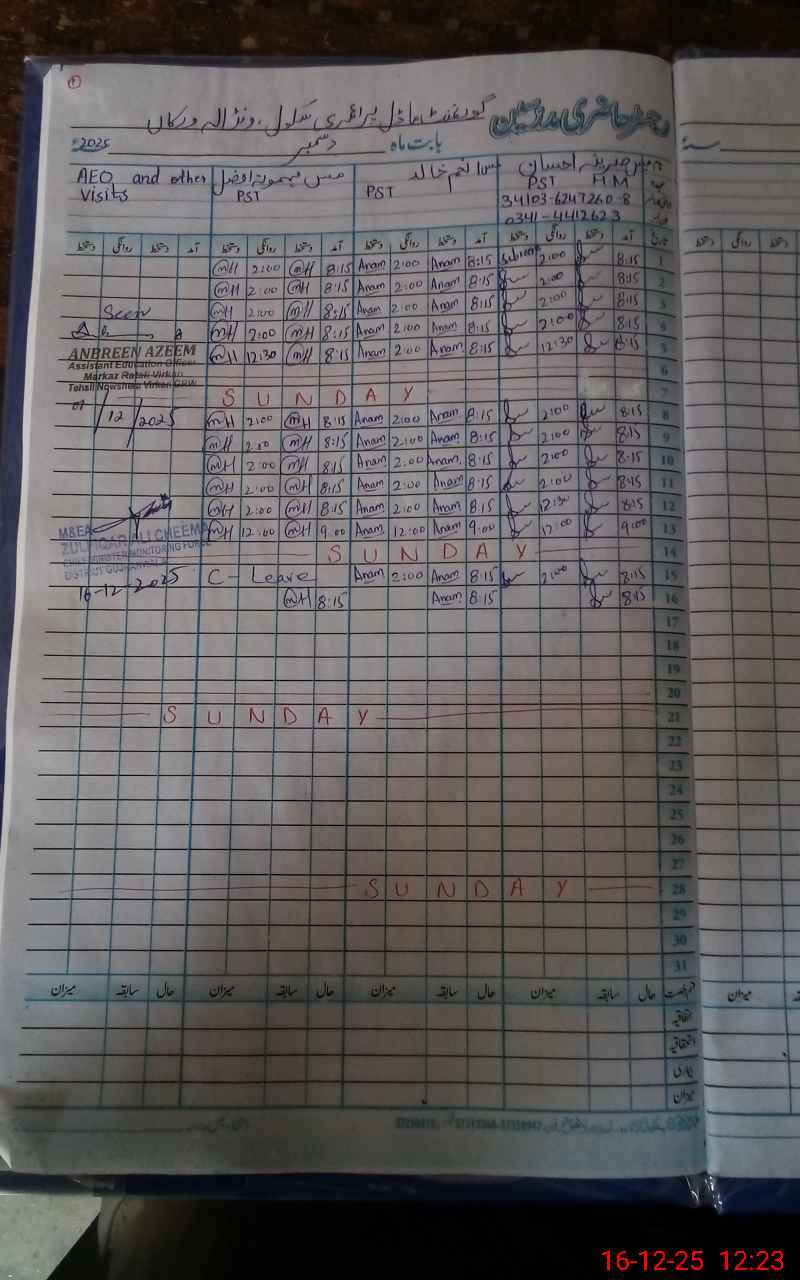 رجسٹر حاضری مدرسین گورنمنٹ ماڈل پرائمری سکول، ونڈالہ ورکاں
بابت ماہ دسمبر 2025
مس صبرینہ احسان
PST HM
34103-6247260-8
0341-4412623
مس انعم خالد
PST
مس میمونہ افضل
PST
AEO and other
visits
تاریخ آمد دستخط روانگی دستخط آمد دستخط روانگی دستخط آمد دستخط روانگی دستخط آمد دستخط روانگی دستخط
mH 2:00 mH 8:15 Anam 2:00 Anam 8:15 2:00 8:15 1
mH 2:00 mH 8:15 Anam 2:00 Anam 8:15 2:00 8:15 2
mH 2:00 mH 8:15 Anam 2:00 Anam 8:15 2:00 8:15 3
mH 2:00 mH 8:15 Anam 2:00 Anam 8:15 2:00 8:15 4
mH 12:30 mH 8:15 Anam 2:00 Anam 8:15 12:30 8:15 5
6
SUNDAY 7
mH 2:00 mH 8:15 Anam 2:00 Anam 8:15 2:00 8:15 8
mH 2:00 mH 8:15 Anam 2:00 Anam 8:15 2:00 8:15 9
mH 2:00 mH 8:15 Anam 2:00 Anam 8:15 2:00 8:15 10
mH 2:00 mH 8:15 Anam 2:00 Anam 8:15 2:00 8:15 11
mH 2:00 mH 8:15 Anam 2:00 Anam 8:15 12:30 8:15 12
mH 12:00 mH 9:00 Anam 12:00 Anam 9:00 12:00 9:00 13
SUNDAY 14
C-Leave Anam 2:00 Anam 8:15 2:00 8:15 15
mH 8:15 Anam 8:15 8:15 16
17
18
19
20
SUNDAY 21
22
23
24
25
26
27
SUNDAY 28
29
30
31
Seen
ANBREEN AZEEM
Assistant Education Officer
Markaz Ratali Virkan
Tehsil Nowshera Virkan GRW
01/12/2025
M&EA
ZULFIQAR ALI CHEEMA
CHIEF MINISTER MONITORING FORCE
DISTRICT GUJRANWALA
16-12-2025
قسم رخصت حال سابقہ میزان حال سابقہ میزان حال سابقہ میزان حال سابقہ میزان
اتفاقیہ
استحقاقیہ
بیماری
میزان
16-12-25 12:23